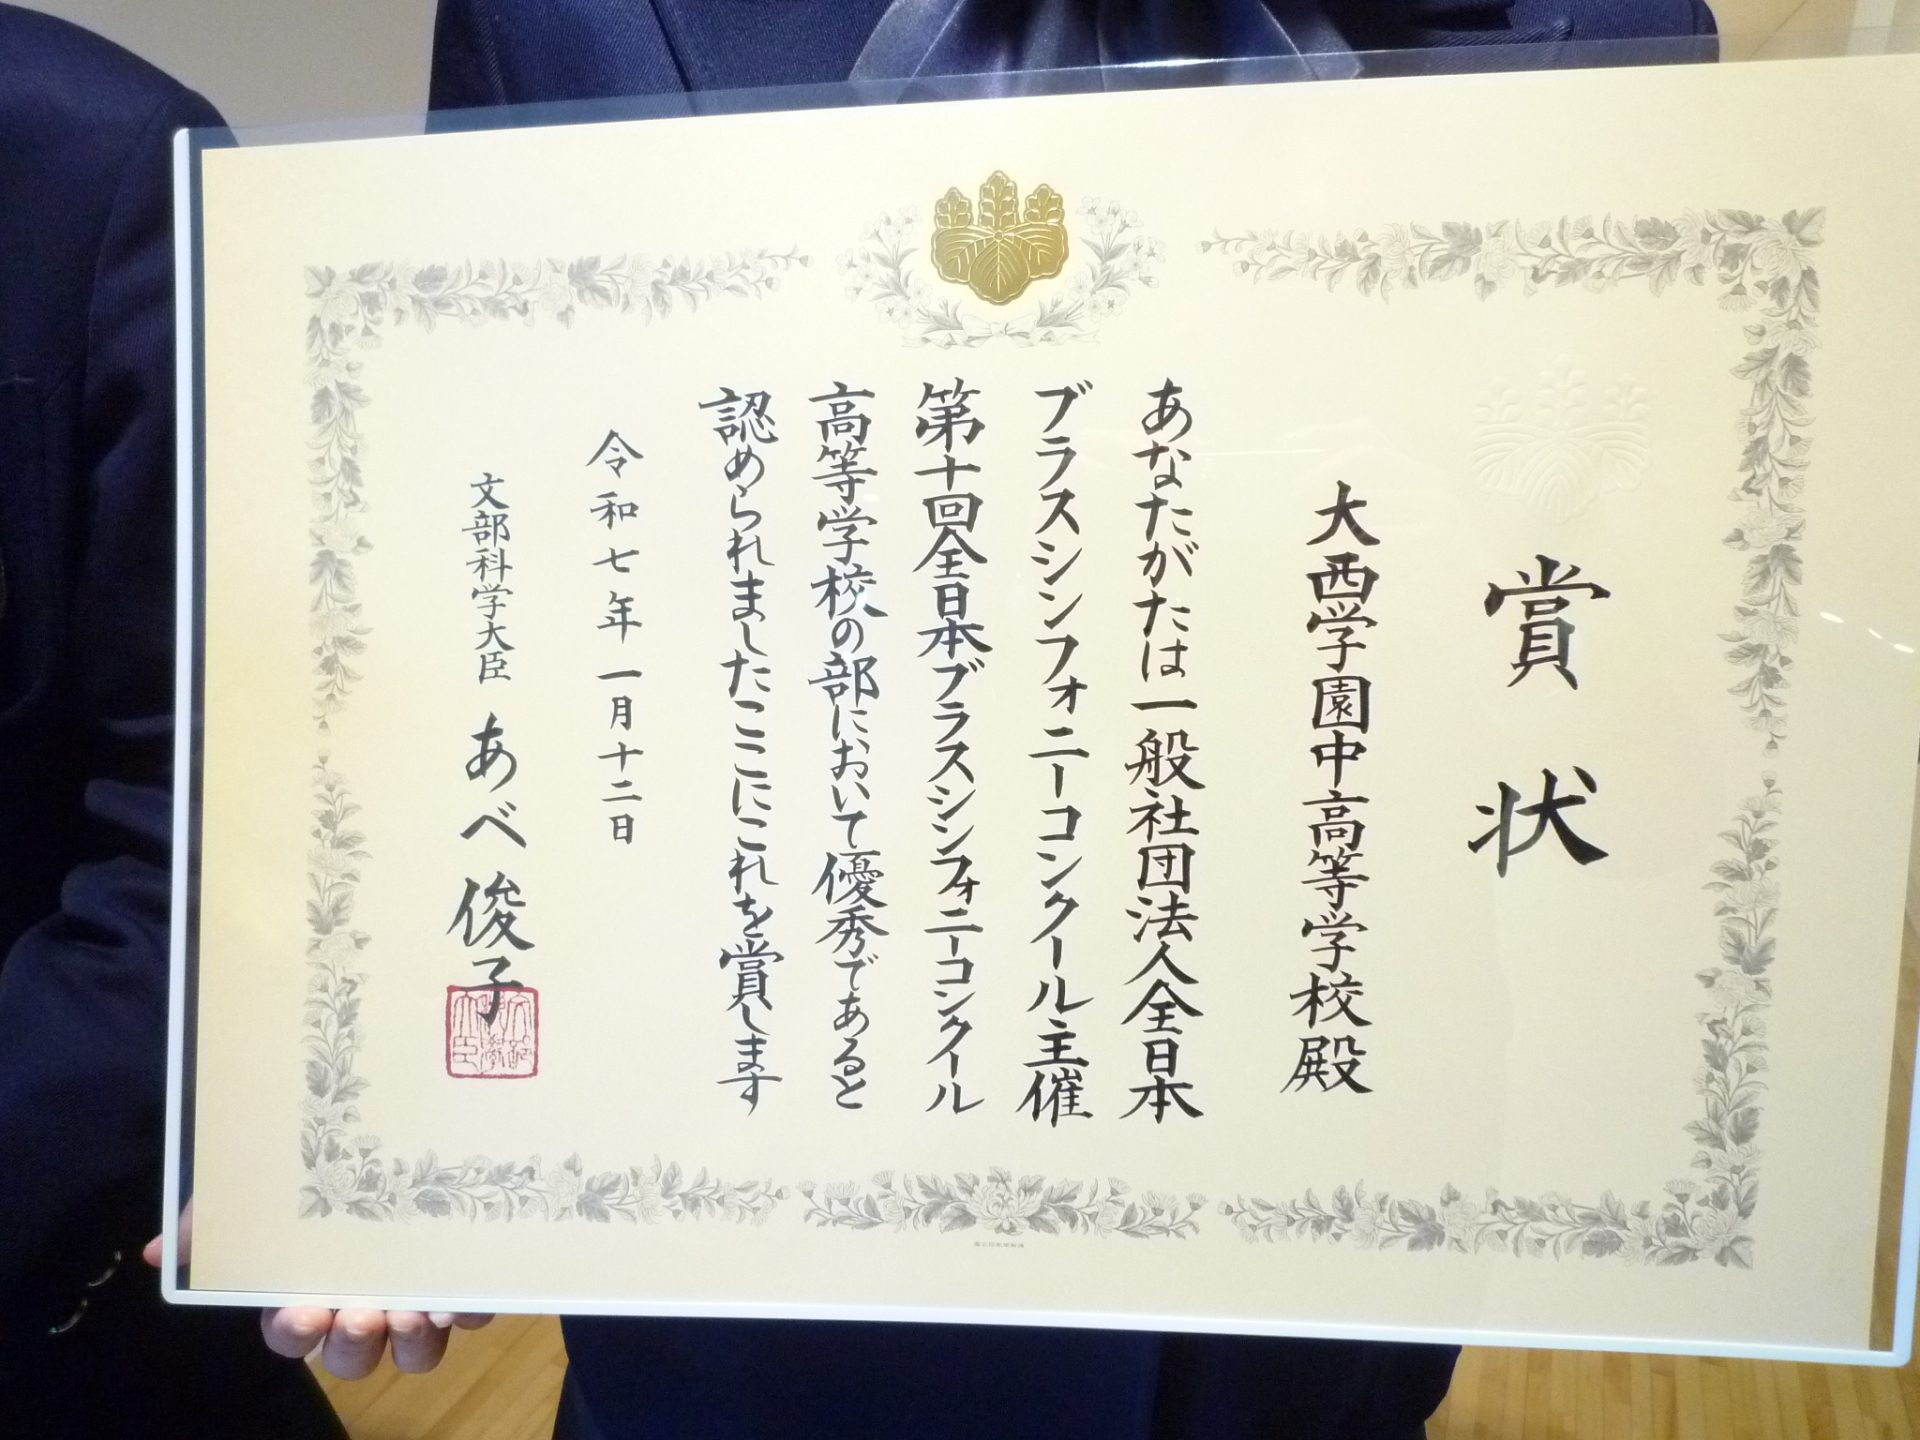 賞状
大西学園中高等学校殿
あなたがたは一般社団法人全日本
ブラスシンフォニーコンクール主催
第十回全日本ブラスシンフォニーコンクール
高等学校の部において優秀であると
認められましたここにこれを賞します
令和七年一月十二日
文部科学大臣 あべ俊子